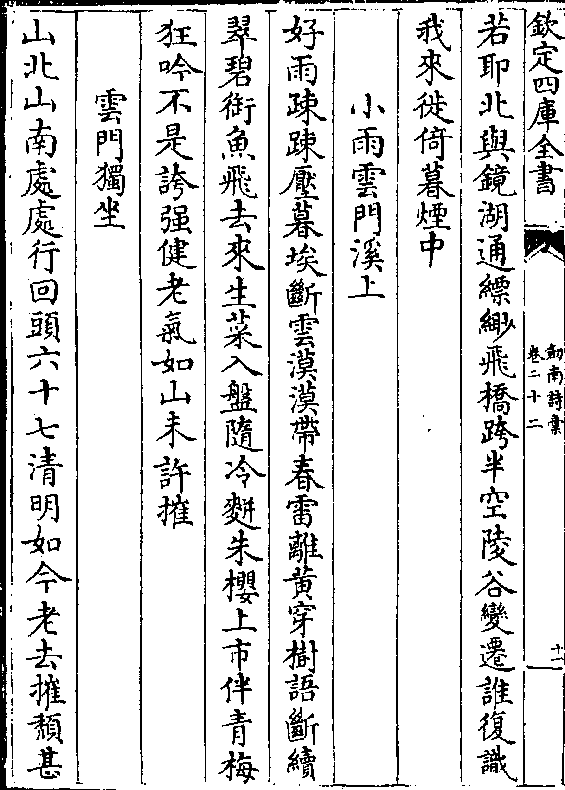 欽定四庫全書
劍南詩藁
卷二十二
十一
若耶北與鏡湖通縹緲飛橋跨半空陵谷變遷誰復識
我來徙倚暮煙中
小雨雲門溪上
好雨疎疎壓暮埃斷雲漠漠帶春雷離黄穿樹語斷續
翠碧銜魚飛去來生菜入盤隨冷麫朱櫻上市伴青梅
狂吟不是誇强健老氣如山未許摧
雲門獨坐
山北山南處處行回頭六十七清明如今老去摧頽甚